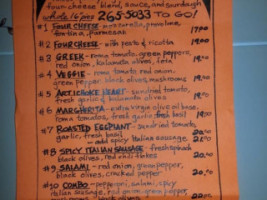 four-cheese blend, sauce, and sourdough
whole 16" pies 265-5033 TO GO!
#1 FOUR CHEESE - mozzarella, provolone,
fontina, parmesan 17.00
#2 FOUR CHEESE - with pesto & ricotta 19.00
#3 GREEK - roma tomato, green peppers,
red onion, kalamata olives, feta 19.00
#4 VEGGIE - roma tomato, red onion,
green pepper, black olives, mushrooms 19.00
#5 ARTICHOKE HEART - sundried tomato,
fresh garlic & kalamata olives 19.00
#6 MARGHERITA - extra virgin olive oil base,
roma tomatoes, fresh garlic, fresh basil 19.00
#7 ROASTED EGGPLANT - sundried tomato,
garlic, fresh basil 20.00
or add spicy Italian sausage
#8 SPICY ITALIAN SAUSAGE - fresh garlic,
black olives, red chili flakes 20.00
#9 SALAMI - red onion, green pepper,
black olives, cracked pepper 20.00
#10 COMBO - pepperoni, salami, spicy
italian sausage, red onion, green pepper,
black olives